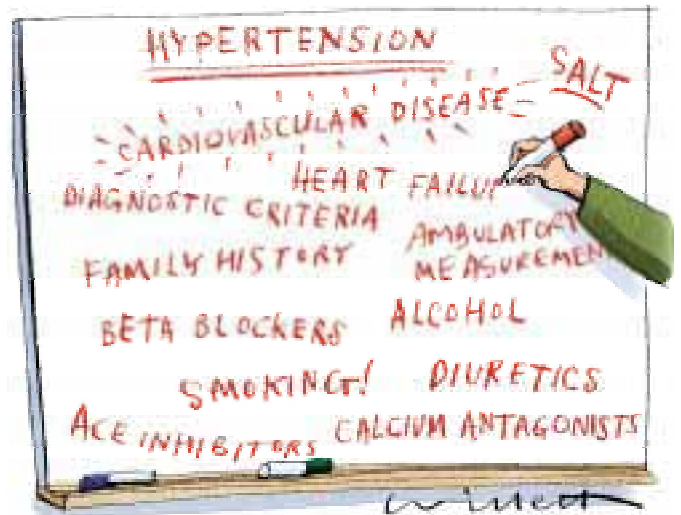 HYPERTENSION
SALT
CARDIOVASCULAR DISEASE
HEART FAILU
DIAGNOSTIC CRITERIA
AMBULATORY
MEASUREMEN
FAMILY HISTORY
ALCOHOL
BETA BLOCKERS
SMOKING!
DIURETICS
ACE INHIBITORS
CALCIUM ANTAGONISTS